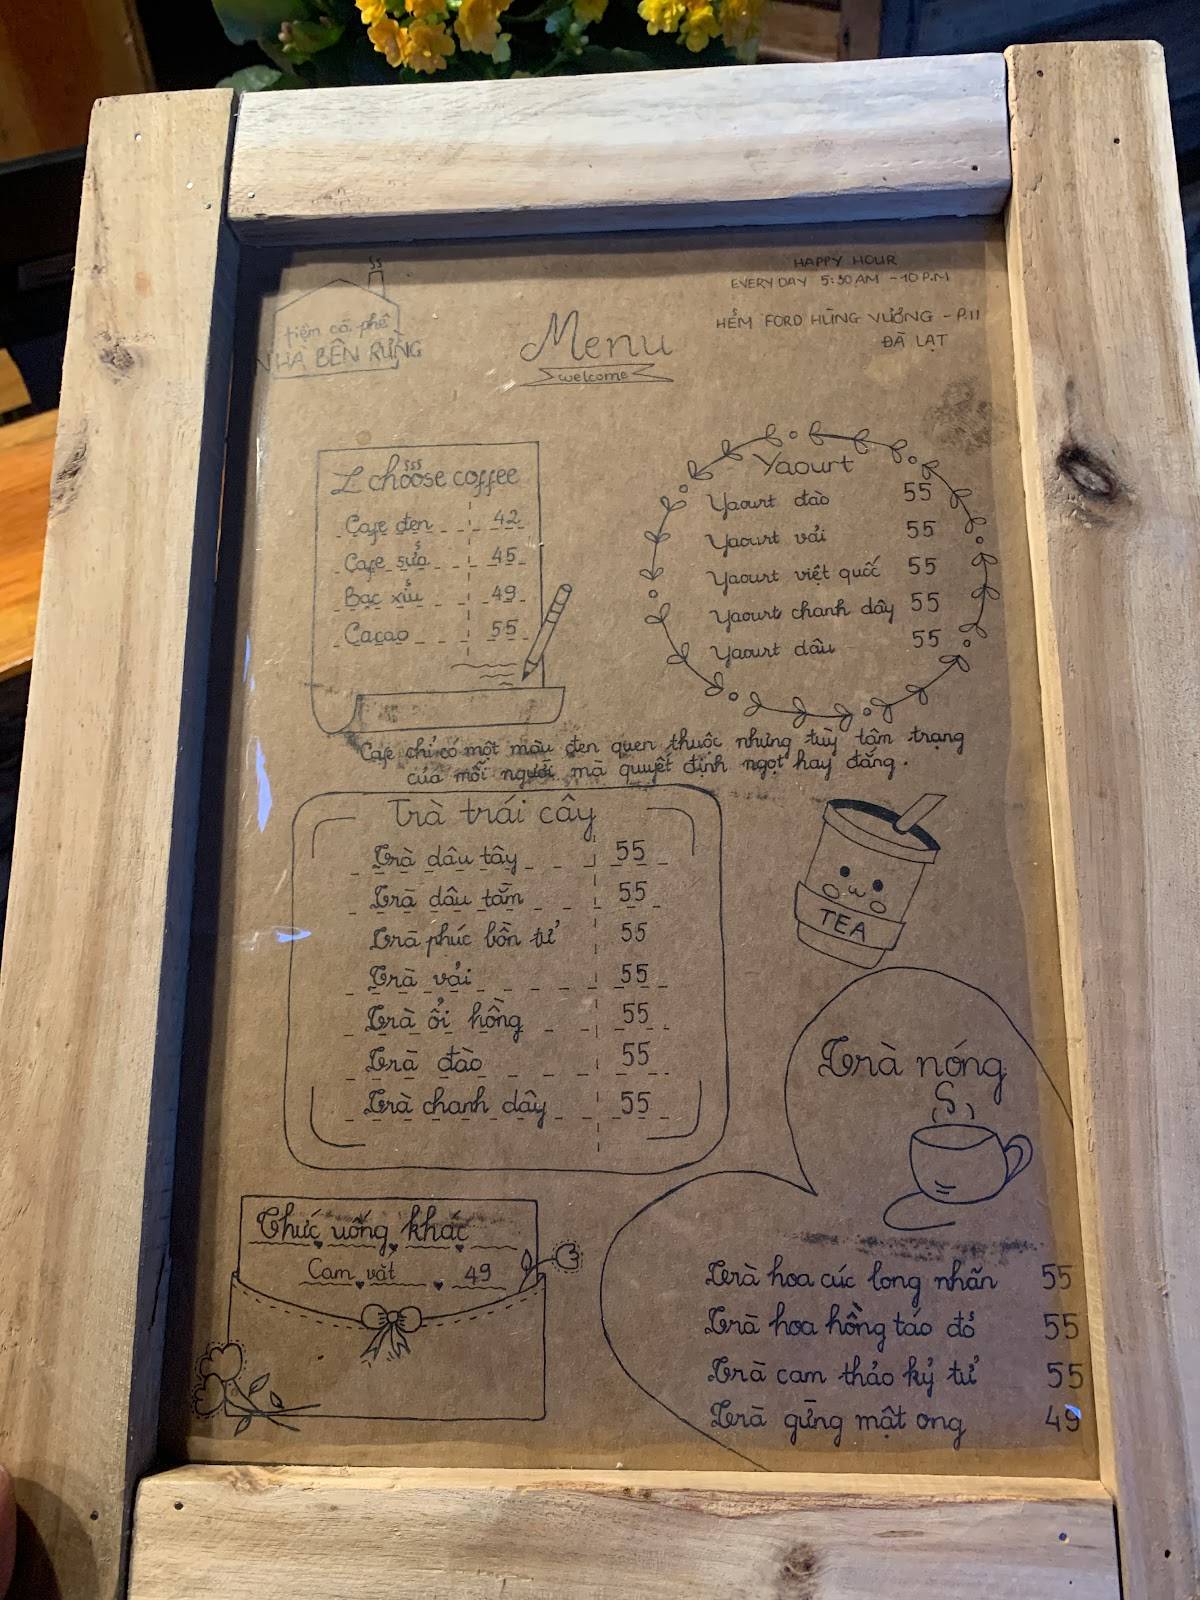 tiệm cà phê
NHÀ BÊN RỪNG
Menu
welcome
HAPPY HOUR
EVERYDAY 5:30 AM - 10 P.M
HẺM FORD HÙNG VƯƠNG - P.11
ĐÀ LẠT
I choose coffee
Cafe đen 42
Cafe sữa 45
Bạc xỉu 49
Cacao 55
Yaourt
Yaourt đào 55
Yaourt vải 55
Yaourt việt quốc 55
Yaourt chanh dây 55
Yaourt dâu 55
Cafe chỉ có một màu đen quen thuộc nhưng tùy tâm trạng
của mỗi người mà quyết định ngọt hay đắng.
Trà trái cây
Trà dâu tây 55
Trà dâu tằm 55
Trà phúc bồn tử 55
Trà vải 55
Trà ổi hồng 55
Trà đào 55
Trà chanh dây 55
TEA
Trà nóng
Trà hoa cúc long nhãn 55
Trà hoa hồng táo đỏ 55
Trà cam thảo kỷ tử 55
Trà gừng mật ong 49
Thức uống khác
Cam vắt 49